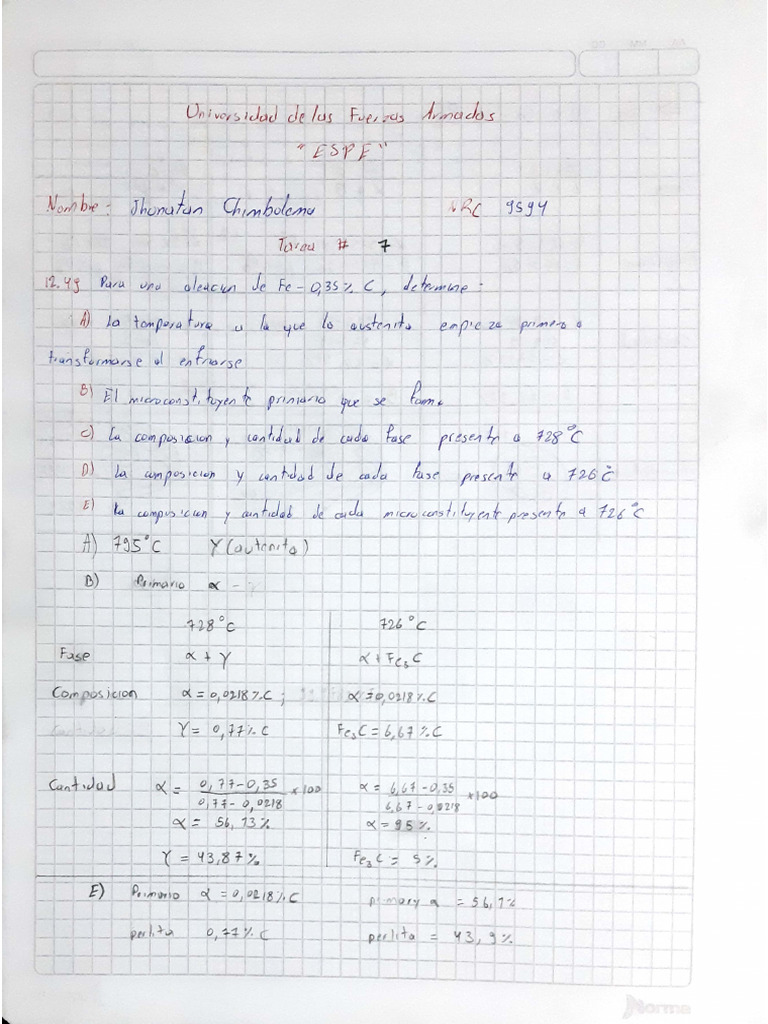 Universidad de las Fuerzas Armadas
"ESPE"
Nombre: Jhonatan Chimbolema NRC 9594
Tarea # 7
12.49 Para una aleacion de Fe - 0,35% C, determine:
A) la temperatura a la que la austenita empieza primero a
transformarse al enfriarse
B) El microconstituyente primario que se forma
C) la composicion y cantidad de cada fase presente a 728°C
D) la composicion y cantidad de cada fase presente a 726°C
E) la composicion y cantidad de cada microconstituyente presente a 726°C
A) 795°C γ (autenita)
B) Primario α -
728°C 726°C
Fase α + γ α + Fe3C
Composicion α = 0,0218%C ; α = 0,0218%C
γ = 0,77%C Fe3C = 6,67%C
Cantidad α = 0,77-0,35 / 0,77-0,0218 *100 α = 6,67-0,35 / 6,67-0,0218 *100
α = 56,13% α = 95%
γ = 43,87% Fe3C = 5%
E) Primario α = 0,0218%C primary α = 56,1%
perlita 0,77%C perlita = 43,9%
Norma